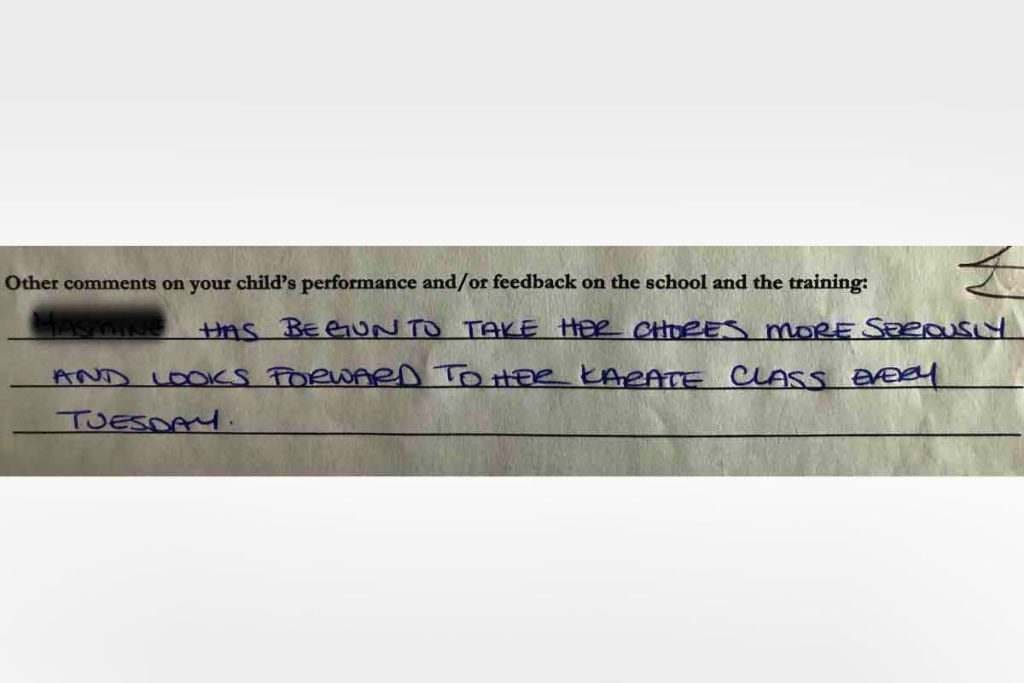 Other comments on your child's performance and/or feedback on the school and the training:
HAS BEGUN TO TAKE HER CHORES MORE SERIOUSLY
AND LOOKS FORWARD TO HER KARATE CLASS EVERY
TUESDAY.